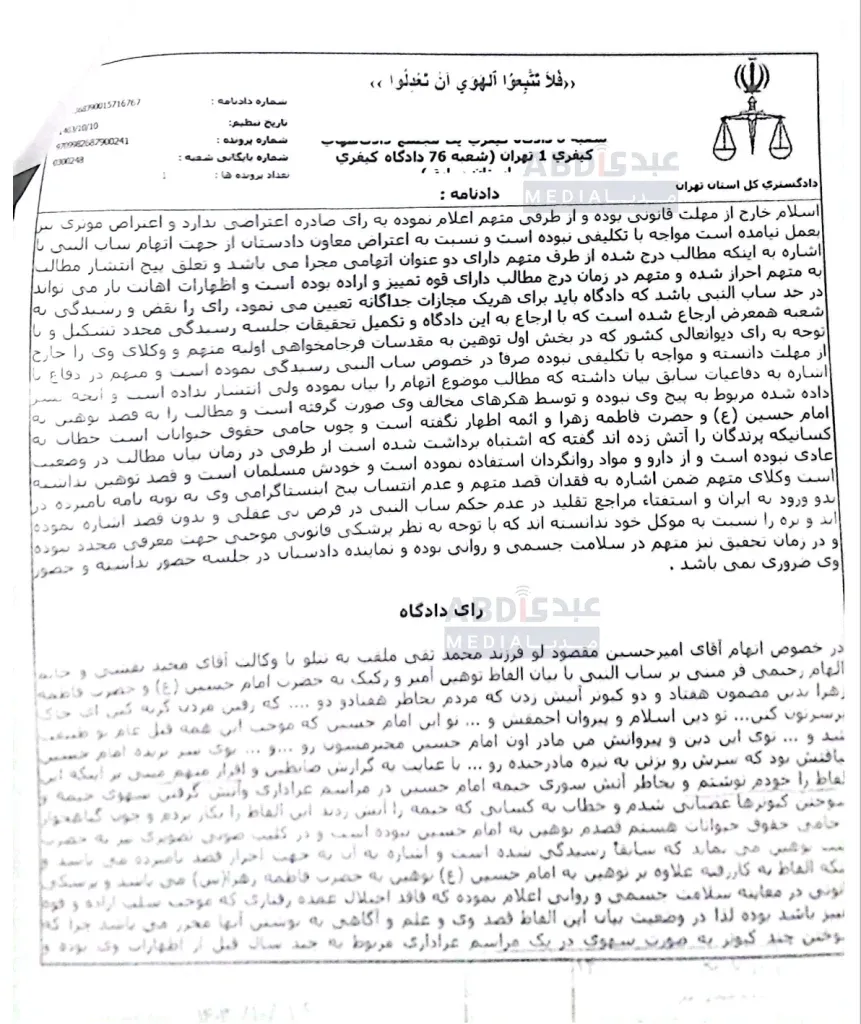 ((فَلَا تَتَّبِعُوا الْهَوَى أَنْ تَعْدِلُوا))
شماره دادنامه :
تاریخ تنظیم: 1403/10/10
شماره پرونده :
کیفري 1 تهران (شعبه 76 دادگاه کیفري
شماره بایگانی شعبه : 0300248
تعداد پرونده ها :
عبدی ABDI
مدیا MEDIA
دادگستری کل استان تهران
دادنامه :
اسلام خارج از مهلت قانونی بوده و از طرفی متهم اعلام نموده به رای صادره اعتراضی ندارد و اعتراض موثری نیز
بعمل نیامده است مواجه با تکلیفی نبوده است و نسبت به اعتراض معاون دادستان از جهت اتهام ساب النبی با
اشاره به اینکه مطالب درج شده از طرف متهم دارای دو عنوان اتهامی مجزا می باشد و تعلق پیج انتشار مطالب
به متهم احراز شده و متهم در زمان درج مطالب دارای قوه تمییز و اراده بوده است و اظهارات اهانت بار می تواند
در حد ساب النبی باشد که دادگاه باید برای هریک مجازات جداگانه تعیین می نمود، رای را نقض و رسیدگی به
شعبه همعرض ارجاع شده است که با ارجاع به این دادگاه و تکمیل تحقیقات جلسه رسیدگی مجدد تشکیل و با
توجه به رای دیوانعالی کشور که در بخش اول توهین به مقدسات فرجامخواهی اولیه متهم و وکلای وی را خارج
از مهلت دانسته و مواجه با تکلیفی نبوده صرفا در خصوص ساب النبی رسیدگی نموده است و متهم در دفاع با
اشاره به دفاعیات سابق بیان داشته که مطالب موضوع اتهام را بیان نموده ولی انتشار نداده است و آنچه نشر
داده شده مربوط به پیج وی نبوده و توسط هکرهای مخالف وی صورت گرفته است و مطالب را به قصد توهین به
امام حسین (ع) و حضرت فاطمه زهرا و ائمه اظهار نگفته است و چون حامی حقوق حیوانات است خطاب به
کسانیکه پرندگان را آتش زده اند گفته که اشتباه برداشت شده است از طرفی در زمان بیان مطالب در وضعیت
عادی نبوده است و از دارو و مواد روانگردان استفاده نموده است و خودش مسلمان است و قصد توهین نداشته
است وکلای متهم ضمن اشاره به فقدان قصد متهم و عدم انتساب پیج اینستاگرامی وی به توبه نامه نامبرده در
بدو ورود به ایران و استفتاء مراجع تقلید در عدم حکم ساب النبی در فرض بی عقلی و بدون قصد اشاره نموده
اند و بزه را نسبت به موکل خود ندانسته اند که با توجه به نظر پزشکی قانونی موجبی جهت معرفی مجدد نبوده
و در زمان تحقیق نیز متهم در سلامت جسمی و روانی بوده و نماینده دادستان در جلسه حضور نداشته و حضور
وی ضروری نمی باشد .
عبدی ABDI
مدیا MEDIA
رای دادگاه
در خصوص اتهام آقای امیرحسین مقصود لو فرزند محمد تقی ملقب به تتلو با وکالت آقای مجید نقشی و خانم
الهام رحیمی فر مبنی بر ساب النبی با بیان الفاظ توهین آمیز و رکیک به حضرت امام حسین (ع) و حضرت فاطمه
زهرا بدین مضمون هفتاد و دو کبوتر آتیش زدن که مردم بخاطر هفتادو دو .... که رفتن مردن گریه کنن ای خاک
برسرتون کنن... تو دین اسلام و پیروان احمقش و ... تو این امام حسین که موجب این همه قتل عام تو طبیعت
شد و ... توی این دین و پیروانش من مادر اون امام حسین محترمتون رو ...و... توی سر بریده امام حسین
یاقتش بود که سرش رو بزنن به نیزه مادرجنده رو ... با عنایت به گزارش ضابطین و اقرار متهم مبنی بر اینکه این
لفاظ را خودم نوشتم و بخاطر آتش سوزی خیمه امام حسین در مراسم عزاداری وآتش گرفتن سهوی خیمه و
سوختن کبوترها عصبانی شدم و خطاب به کسانی که خیمه را آتش زدند این الفاظ را بکار بردم و چون گیاهخوار
حامی حقوق حیوانات هستم قصدم توهین به امام حسین نبوده است و در کلیپ صوتی تصویری نیز به حضرت
توهین می نماید که سابقا رسیدگی شده است و اشاره به آن به جهت احراز قصد نامبرده می باشد و
ینکه الفاظ به کاررفته علاوه بر توهین به امام حسین (ع) توهین به حضرت فاطمه زهرا(س) می باشد و پزشکی
انونی در معاینه سلامت جسمی و روانی اعلام نموده که فاقد اختلال عمده رفتاری که موجب سلب اراده و قوه
تمیز باشد بوده لذا در وضعیت بیان این الفاظ قصد وی و علم و آگاهی به نوشتن آنها محرز می باشد چرا که
سوختن چند کبوتر به صورت سهوی در یک مراسم عزاداری مربوط به چند سال قبل از اظهارات وی بوده و